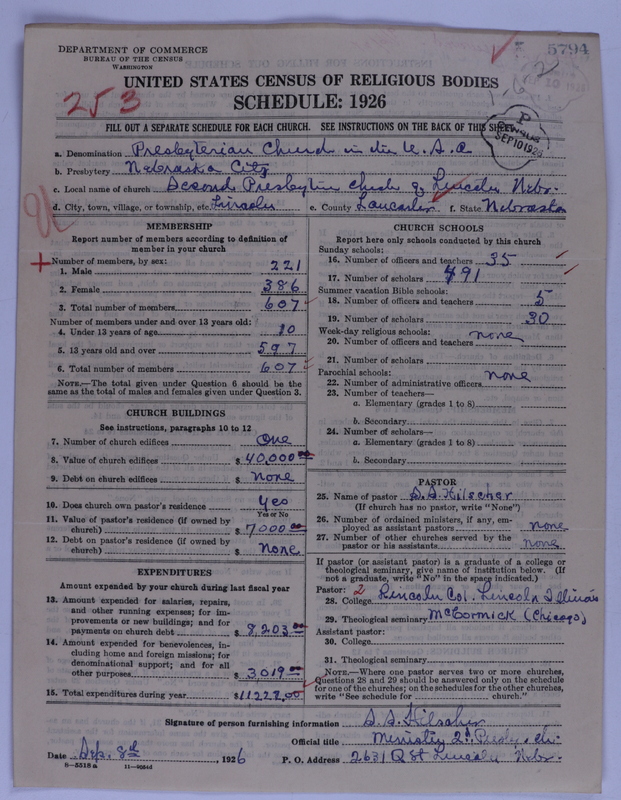 DEPARTMENT OF COMMERCE
BUREAU OF THE CENSUS
WASHINGTON
5794
UNITED STATES CENSUS OF RELIGIOUS BODIES
SCHEDULE: 1926
253
FILL OUT A SEPARATE SCHEDULE FOR EACH CHURCH. SEE INSTRUCTIONS ON THE BACK OF THIS SHEET
SEP 10 1926
a. Denomination Presbyterian Church in the U.S.A
b. Presbytery Nebraska City
c. Local name of church Second Presbyterian church of Lincoln Nebr.
d. City, town, village, or township, etc. Lincoln e. County Lancaster f. State Nebraska
MEMBERSHIP
Report number of members according to definition of
member in your church
Number of members, by sex:
1. Male 221
2. Female 386
3. Total number of members 607
Number of members under and over 13 years old:
4. Under 13 years of age 10
5. 13 years old and over 597
6. Total number of members 607
NOTE.—The total given under Question 6 should be the
same as the total of males and females given under Question 3.
CHURCH BUILDINGS
See instructions, paragraphs 10 to 12
7. Number of church edifices One
8. Value of church edifices $ 40,000.00
9. Debt on church edifices $ None
10. Does church own pastor's residence Yes
Yes or No
11. Value of pastor's residence (if owned by
church) $ 7000.00
12. Debt on pastor's residence (if owned by
church) $ None
EXPENDITURES
Amount expended by your church during last fiscal year
13. Amount expended for salaries, repairs,
and other running expenses; for im-
provements or new buildings; and for
payments on church debt $ 8,203.00
14. Amount expended for benevolences, in-
cluding home and foreign missions; for
denominational support; and for all
other purposes $ 3019.00
15. Total expenditures during year $ 11222.00
CHURCH SCHOOLS
Report here only schools conducted by this church
Sunday schools:
16. Number of officers and teachers 35
17. Number of scholars 491
Summer vacation Bible schools:
18. Number of officers and teachers 5
19. Number of scholars 30
Week-day religious schools:
20. Number of officers and teachers none
21. Number of scholars
Parochial schools:
22. Number of administrative officers none
23. Number of teachers—
a. Elementary (grades 1 to 8)
b. Secondary
24. Number of scholars—
a. Elementary (grades 1 to 8)
b. Secondary
PASTOR
25. Name of pastor S.S. Hilscher
(If church has no pastor, write "None")
26. Number of ordained ministers, if any, em-
ployed as assistant pastors none
27. Number of other churches served by the
pastor or his assistants none
If pastor (or assistant pastor) is a graduate of a college or
theological seminary, give name of institution below. (If
not a graduate, write "No" in the space indicated.)
Pastor: 2
28. College Lincoln Col. Lincoln Illinois
29. Theological seminary McCormick (Chicago)
Assistant pastor:
30. College
31. Theological seminary
NOTE.—Where one pastor serves two or more churches,
Questions 28 and 29 should be answered only on the schedule
for one of the churches; on the schedules for the other churches,
write "See schedule for church."
Signature of person furnishing information S.S. Hilscher
Official title 2d. Presby. ch.
Date Sep. 8th, 1926 P. O. Address 2631 Q St Lincoln Nebr.
8-5318 a 11-9054d